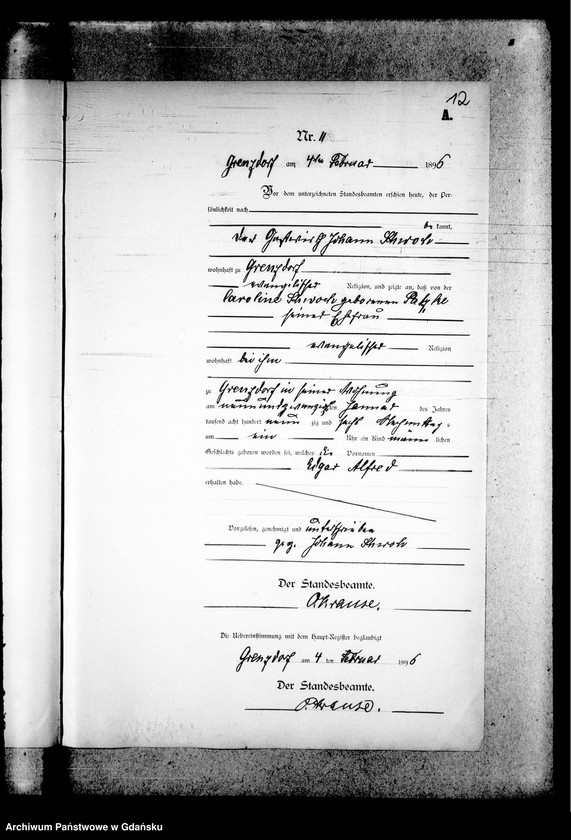 12
A.
Nr. 11
Grenzdorf am 4ten Februar 1896
Vor dem unterzeichneten Standesbeamten erschien heute, der Per-
sönlichkeit nach
be kannt,
der Gastwirth Johann
wohnhaft zu Grenzdorf
evangelischer Religion, und zeigte an, daß von der
Caroline geborenen
seiner Ehefrau
evangelischer Religion
wohnhaft bei ihm
zu Grenzdorf in seiner Wohnung
am neunundzwanzigsten Januar des Jahres
tausend acht hundert neun zig und sechs Nachmittags
um ein Uhr ein Kind männlichen
Geschlechts geboren worden sei, welches die Vornamen
Edgar Alfred
erhalten habe.
Vorgelesen, genehmigt und unterschrieben
gez. Johann
Der Standesbeamte.
Krause.
Die Uebereinstimmung mit dem Haupt-Register beglaubigt
Grenzdorf am 4 ten Februar 1896
Der Standesbeamte.
Krause.
Archiwum Państwowe w Gdańsku